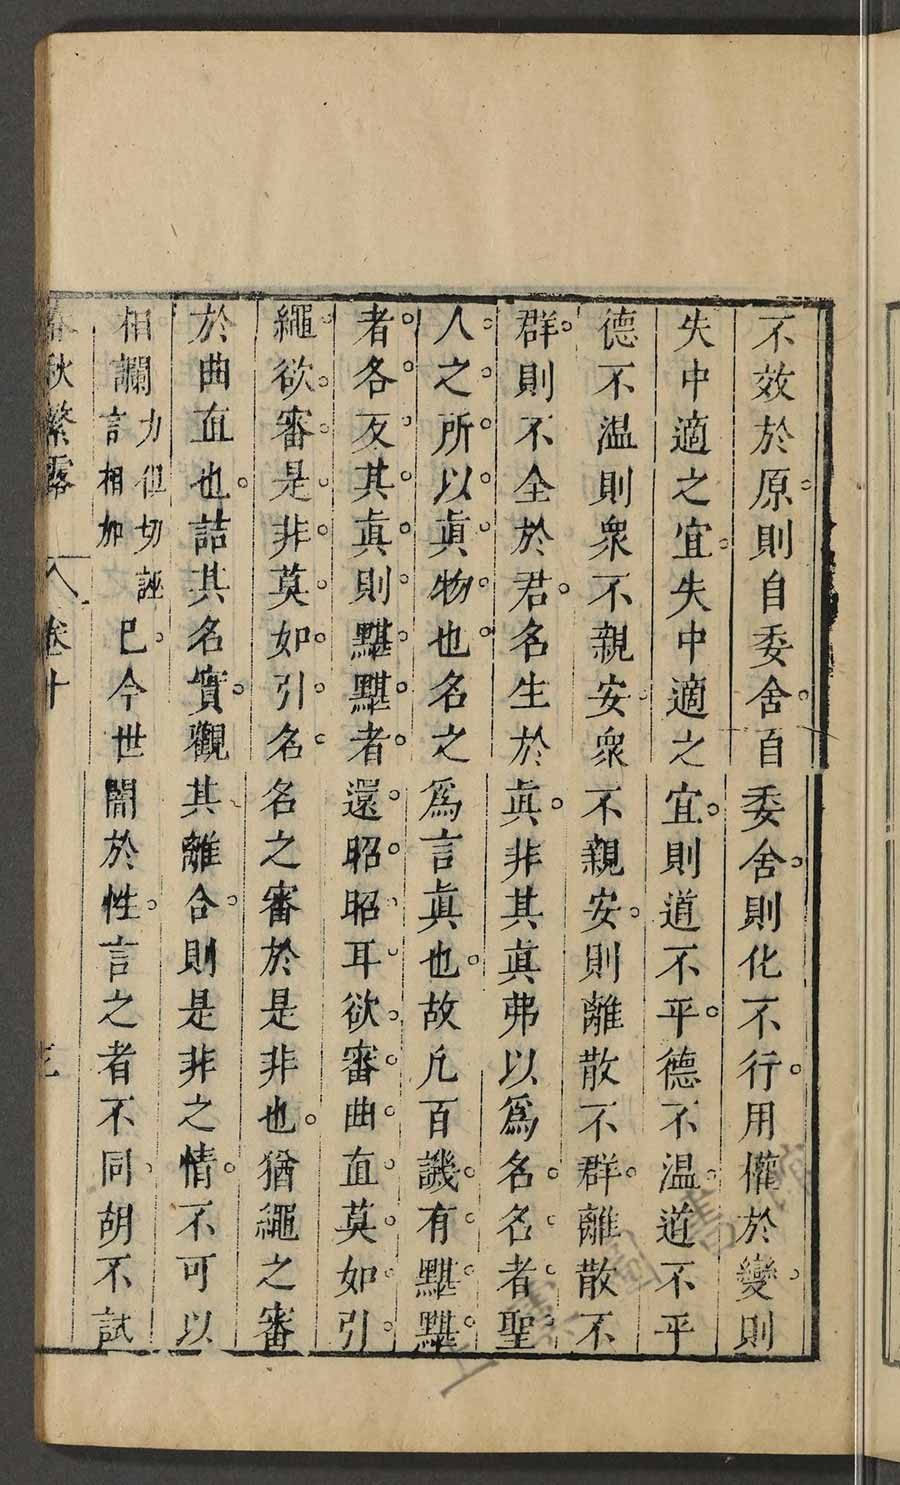 不效於原則自委舍自委舍則化不行用權於變則
失中適之宜失中適之宜則道不平德不温道不平
德不温則衆不親安衆不親安則離散不群離散不
群則不全於君名生於眞非其眞弗以爲名名者聖
人之所以眞物也名之爲言眞也故凡百譏有黮黮
者各反其眞則黮黮者還昭昭耳欲審曲直莫如引
繩欲審是非莫如引名名之審於是非也猶繩之審
於曲直也詰其名實觀其離合則是非之情不可以
相讕力但切誣言相加已今世闇於性言之者不同胡不試
春秋繁露 卷十 三